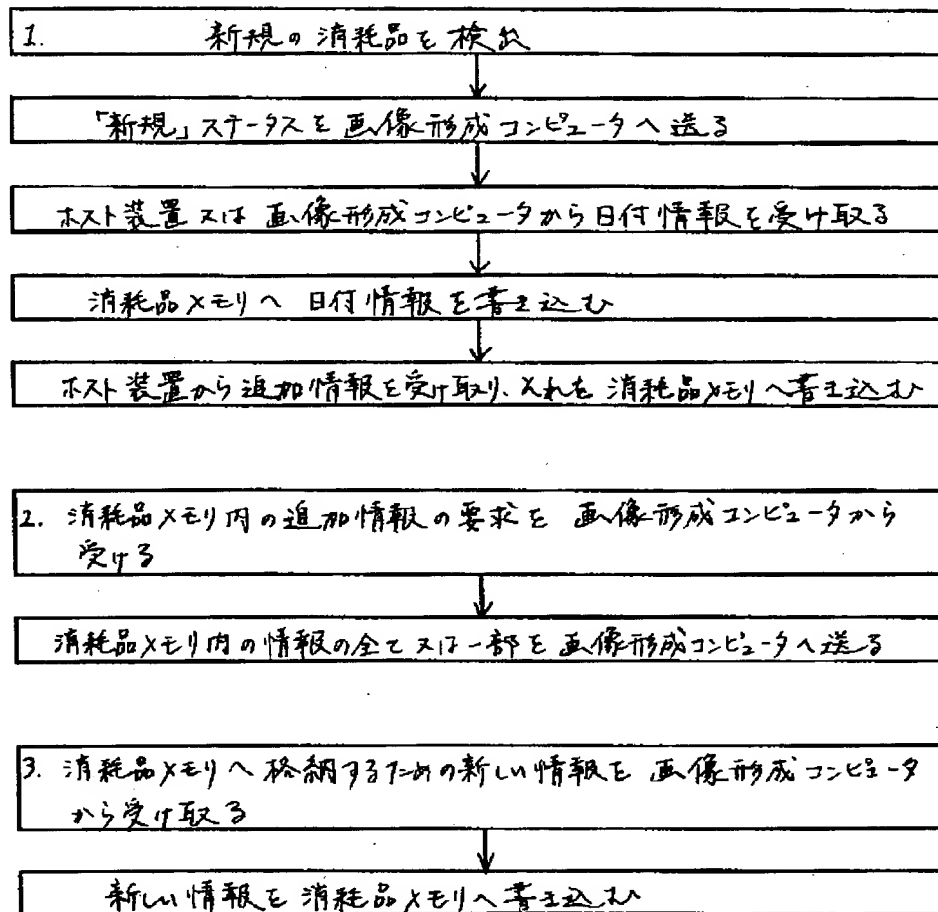 1. 新規の消耗品を検出
「新規」ステータスを画像形成コンピュータへ送る
ホスト装置又は画像形成コンピュータから日付情報を受け取る
消耗品メモリへ日付情報を書き込む
ホスト装置から追加情報を受け取り、それを消耗品メモリへ書き込む
2. 消耗品メモリ内の追加情報の要求を画像形成コンピュータから
受ける
消耗品メモリ内の情報の全て又は一部を画像形成コンピュータへ送る
3. 消耗品メモリへ格納するための新しい情報を画像形成コンピュータ
から受け取る
新しい情報を消耗品メモリへ書き込む